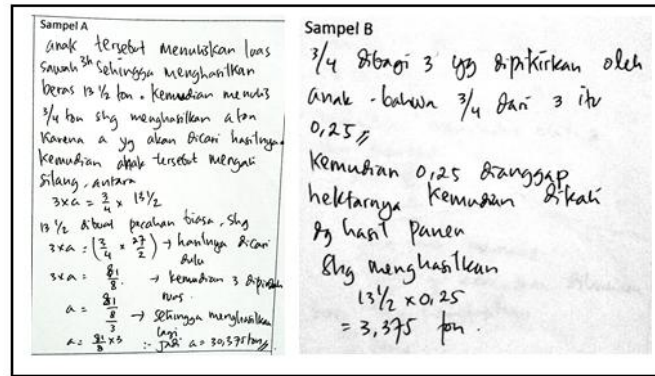 Sampel A
anak tersebut menuliskan luas
sawah 3h sehingga menghasilkan
beras 13 1/2 ton. Kemudian menulis
3/4 ton shg menghasilkan a ton
Karena a yg akan dicari hasilnya
Kemudian anak tersebut mengali
silang, antara
3×a = 3/4 × 13 1/2
13 1/2 dibuat pecahan biasa, shg
3×a = (3/4 × 27/2) → hasilnya dicari
dulu
3×a = 81/8 → kemudian 3 dipindah
ruas.
a = 81/8/3 → sehingga menghasilkan
lagi
a = 81/8 × 3 :- jadi a = 30,375 ton //
Sampel B
3/4 dibagi 3 yg dipikirkan oleh
anak - bahwa 3/4 dari 3 itu
0,25 //
Kemudian 0,25 dianggap
hektarnya kemudian dikali
dg hasil panen
Shg menghasilkan
13 1/2 × 0,25
= 3,375 ton.